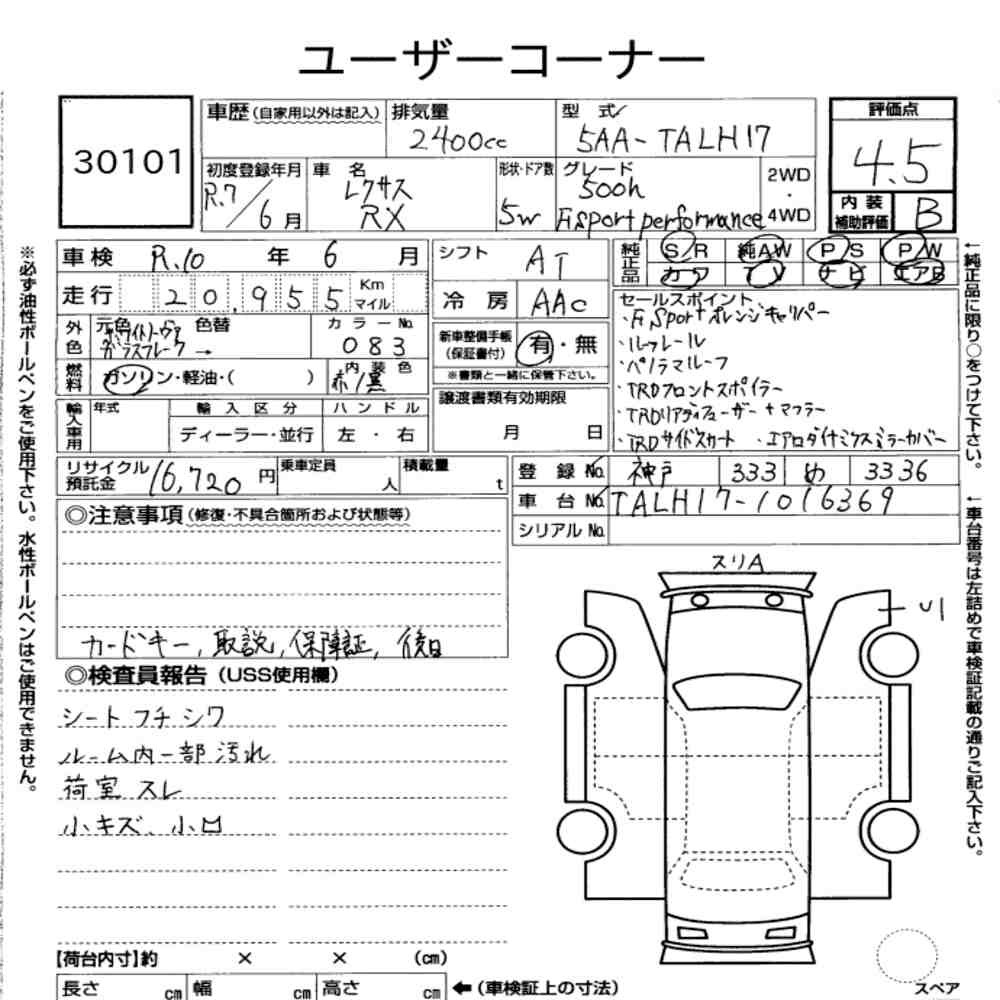 ユーザーコーナー
30101
車歴(自家用以外は記入)
排気量
2400cc
型式
5AA-TALH17
評価点
4.5
初度登録年月
R.7/6月
車名
レクサス
RX
形状・ドア数
5W
グレード
500h
F.Sport performance
2WD
・
4WD
内装
補助評価
B
※必ず油性ボールペンをご使用下さい。水性ボールペンはご使用できません。
車検 R.10 年 6 月
シフト AT
純正品
SR 純AW PS P/W
カワ TV ナビ エアB
走行 20,955 Km マイル
冷房 AAC
セールスポイント
・F.Sportオレンジキャリパー
・ルーフレール
・パノラマルーフ
・TRDフロントスポイラー
・TRDリアディフューザー+マフラー
・TRDサイドスカート ・エアロダイナミクスミラーカバー
外色
元色 ホワイトノーヴァ
ガラスフレーク
色替
→
カラーNo.
083
新車整備手帳
(保証書付)
有・無
※書類と一緒に保管下さい。
燃料
ガソリン・軽油・( )
内装色
赤/黒
譲渡書類有効期限
月 日
輸入車用
年式
輸入区分
ディーラー・並行
ハンドル
左・右
リサイクル
預託金
16,720円
乗車定員
人
積載量
t
登録No. 神戸 333 め 3336
車台No. TALH17-1016369
シリアルNo.
←純正品に限り○をつけて下さい。
←車台番号は左詰めで車検証記載の通りご記入下さい。
◎注意事項(修復・不具合箇所および状態等)
カードキー,取説,保障証,後日
◎検査員報告(USS使用欄)
シートフチシワ
ルーム内一部汚れ
荷室スレ
小キズ、小凹
スリA
【荷台内寸】約 × × (cm)
長さ cm 幅 cm 高さ cm ←(車検証上の寸法)
スペア